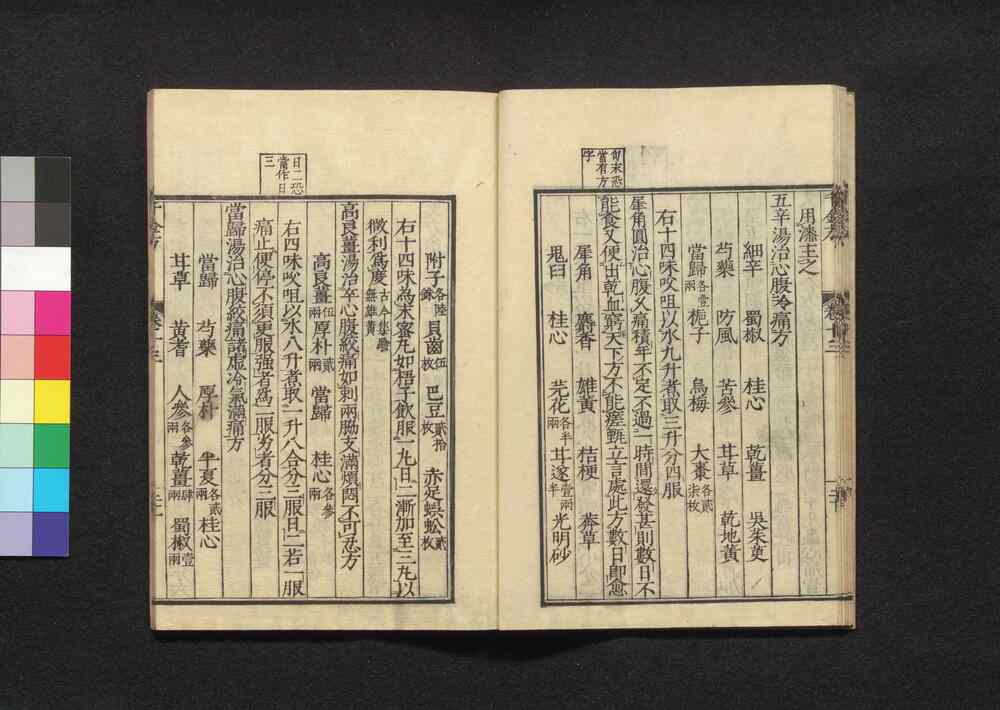 用漆主之
五辛湯治心腹冷痛方
細辛 蜀椒 桂心 乾薑 吳茱萸
芍藥 防風 苦參 甘草 乾地黃
當歸各壹兩 梔子 烏梅 大棗各貳柒枚
右十四味㕮咀以水九升煮取三升分四服
犀角圓治心腹久痛積年不定不過一時間還發甚則數日不
能食又便出乾血窮天下方不能瘥甄立言處此方數日即愈
犀角 麝香 雄黃 桔梗 莽草
鬼臼 桂心 芫花各半兩 甘遂壹兩半 光明砂
句末恐
當有方
字
附子各陸銖 貝齒伍枚 巴豆貳拾枚 赤足蜈蚣貳枚
右十四味為末蜜丸如梧子飲服一丸日二漸加至三丸以
微利為度古今集驗無雄黃
高良薑湯治卒心腹絞痛如刺兩脇支滿煩悶不可忍方
高良薑伍兩 厚朴貳兩 當歸 桂心各參兩
右四味㕮咀以水八升煮取一升八合分三服日二若一服
痛止便停不須更服強者為二服劣者分三服
當歸湯治心腹絞痛諸虛冷氣滿痛方
當歸 芍藥 厚朴 半夏各貳兩 桂心
甘草 黃耆 人參各參兩 乾薑肆兩 蜀椒壹兩
日二恐
當作日
三